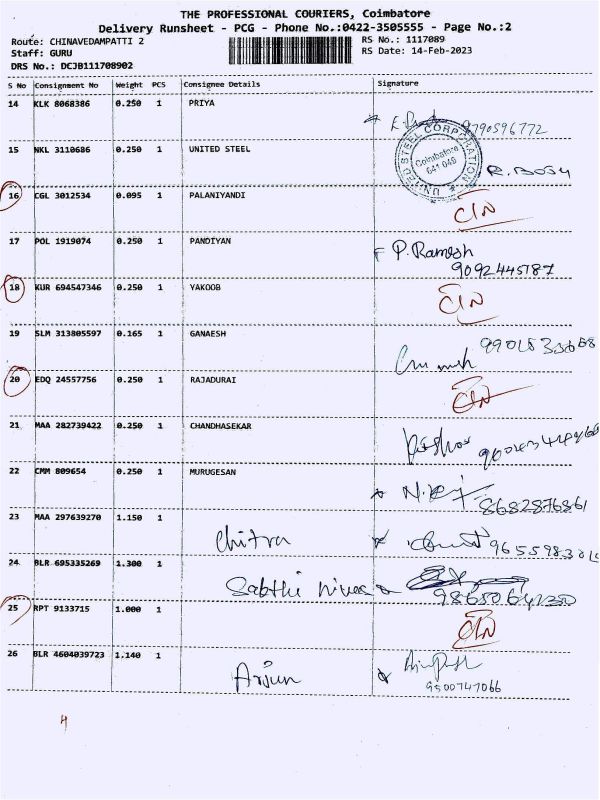 THE PROFESSIONAL COURIERS, Coimbatore
Delivery Runsheet - PCG - Phone No.:0422-3505555 - Page No.:2
Route: CHINAVEDAMPATTI 2
Staff: GURU
DRS No.: DCJB111708902
RS No.: 1117089
RS Date: 14-Feb-2023
S No Consignment No Weight PCS Consignee Details Signature
14 KLK 8068386 0.250 1 PRIYA
9790596772
15 NKL 3110686 0.250 1 UNITED STEEL
UNITED STEEL CORPORATION
Coimbatore
641 046
R. BOSU
16 CGL 3012534 0.095 1 PALANIYANDI
CIN
17 POL 1919074 0.250 1 PANDIYAN
P. Ramesh
9092445187
18 KUR 694547346 0.250 1 YAKOOB
CIN
19 SLM 313805597 0.165 1 GANAESH
20 EDQ 24557756 0.250 1 RAJADURAI
CIN
21 MAA 282739422 0.250 1 CHANDHASEKAR
22 CMM 809654 0.250 1 MURUGESAN
8682876861
23 MAA 297639270 1.150 1
Chitra
24 BLR 695335269 1.300 1
25 RPT 9133715 1.000 1
CIN
26 BLR 4604039723 1.140 1
Arjun
9500747066
4